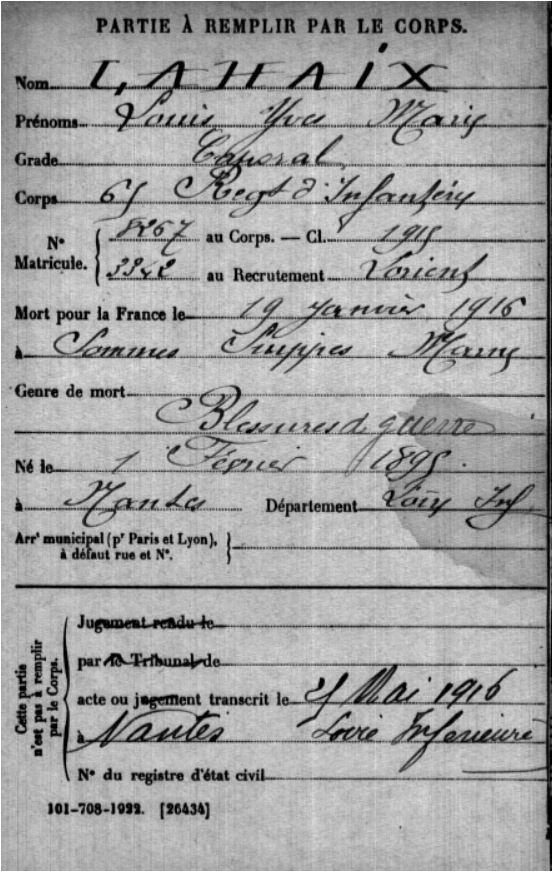 PARTIE À REMPLIR PAR LE CORPS.
Nom LAHAIX
Prénoms Louis Yves Marie
Grade Caporal
Corps 65 Regt d'Infanterie
N° Matricule. 8267 au Corps. — Cl. 1915
3342 au Recrutement Lorient
Mort pour la France le 19 Janvier 1916
à Somme Suippes Marne
Genre de mort
Blessures de guerre
Né le 1 Février 1895
à Nantes Département Loire Inf
Arrt municipal (pr Paris et Lyon),
à défaut rue et N°.
Cette partie n'est pas à remplir par le Corps.
Jugement rendu le
par le Tribunal de
acte ou jugement transcrit le Mai 1916
à Nantes Loire Inferieure
N° du registre d'état civil
101-708-1922. [26434]